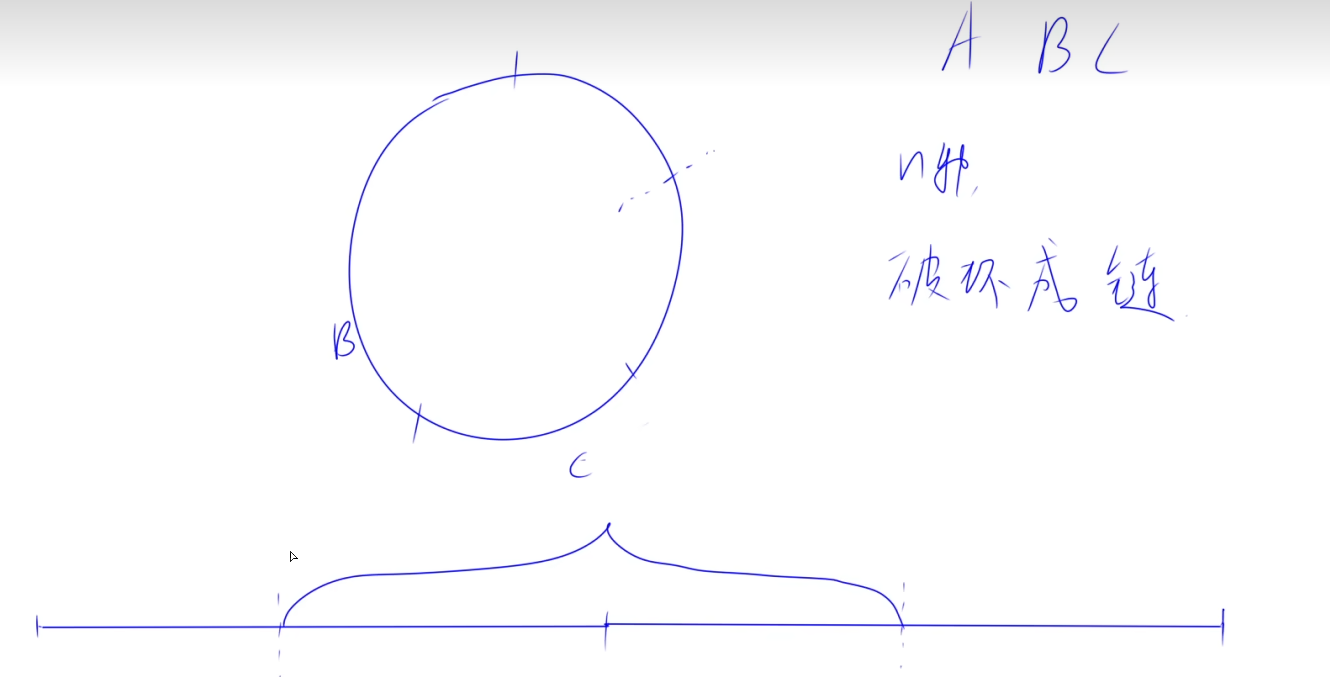 A B C
n种,
破环成链
B
C